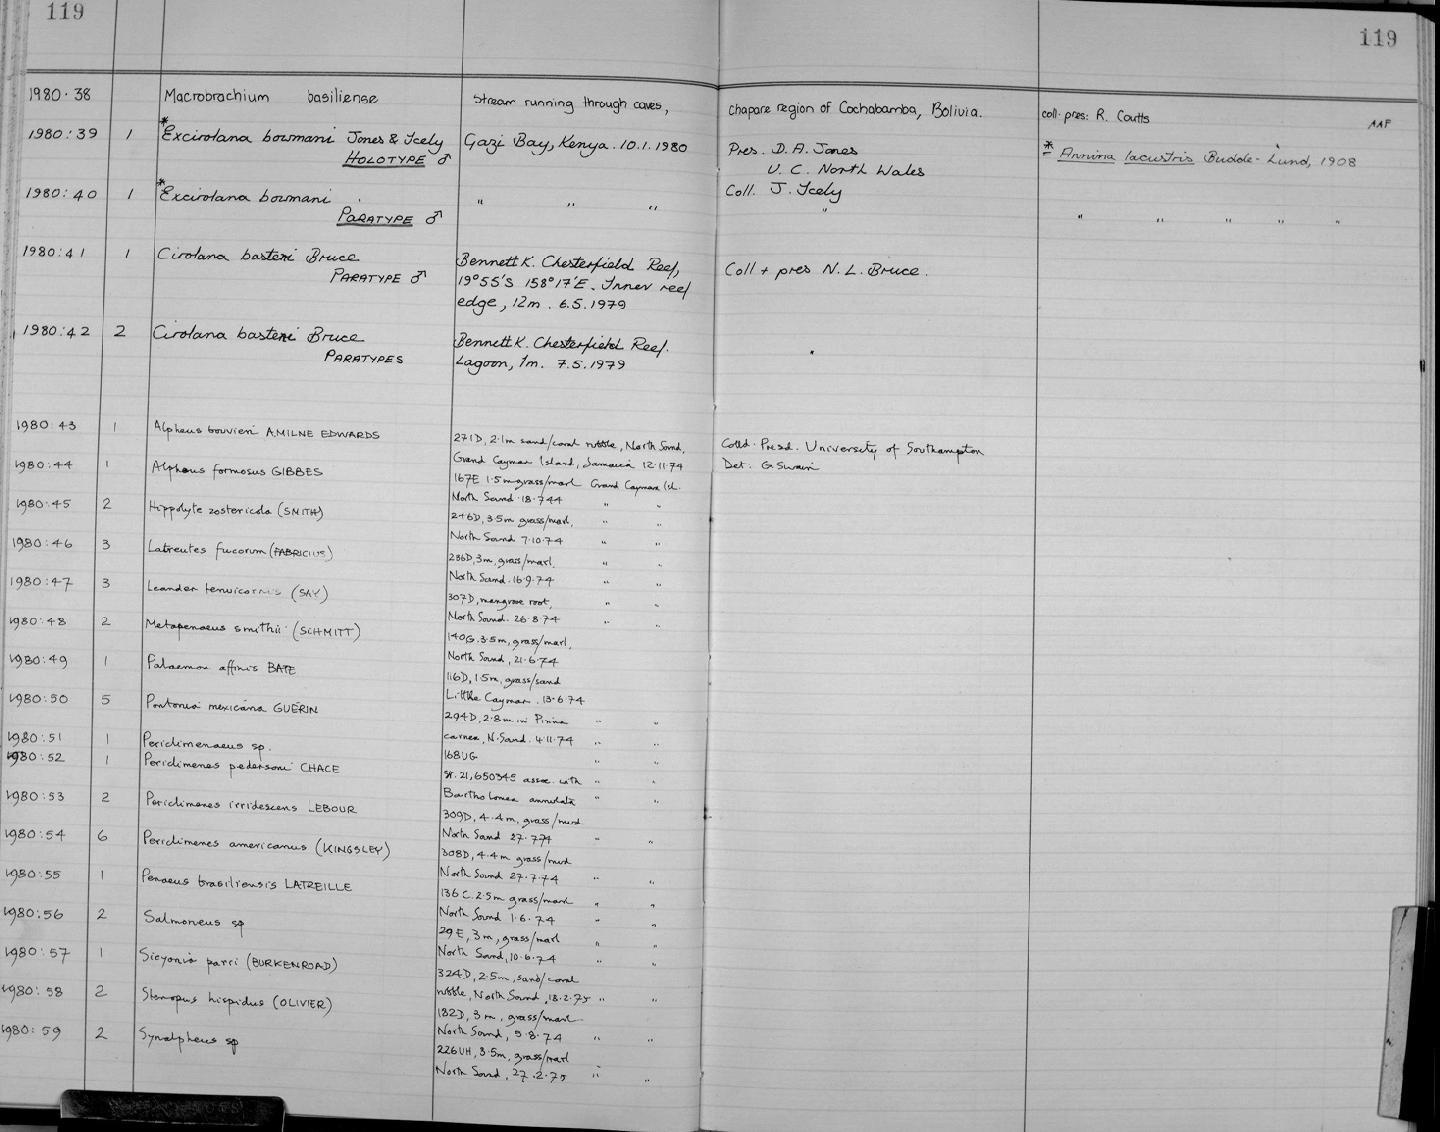 119
119
1980.38 Macrobrachium basiliense Stream running through caves, Chapare region of Cochabamba, Bolivia. coll. pres: R. Coutts
AAF
1980:39 1 *Excirolana bowmani Jones & Icely Gazi Bay, Kenya. 10.1.1980 Pres. D. A. Jones * Annina lacustris Budde-Lund, 1908
HOLOTYPE ♂ U. C. North Wales
1980:40 1 *Excirolana bowmani " " " Coll. J. Icely
PARATYPE ♂ " " " " " "
1980:41 1 Cirolana basteni Bruce Bennett K. Chesterfield Reef, Coll + pres N. L. Bruce.
PARATYPE ♂ 19°55'S 158°17'E. Inner reef
edge, 12m. 6.5.1979
1980:42 2 Cirolana basteni Bruce Bennett K. Chesterfield Reef. "
PARATYPES Lagoon, 1m. 7.5.1979
1980:43 1 Alpheus bouvieri A.MILNE EDWARDS 271D, 2.1m sand/coral rubble, North Sound, Colld. Presd. University of Southampton
Grand Cayman Island, Jamaica 12.11.74 Det. G. Swain
1980:44 1 Alpheus formosus GIBBES 167E 1.5m grass/marl Grand Cayman Isl.
North Sound 18.7.44 " "
1980:45 2 Hippolyte zostericola (SMITH) 246D, 3.5m grass/marl, " "
North Sound 7.10.74 " "
1980:46 3 Latreutes fucorum (FABRICIUS) 236D, 3m, grass/marl. " "
North Sound. 16.9.74 " "
1980:47 3 Leander tenuicornis (SAY) 307D, mangrove root, " "
North Sound. 26.8.74 " "
1980:48 2 Metapenaeus smithii (SCHMITT) 140G. 3.5m, grass/marl,
North Sound, 21.6.74
1980:49 1 Palaemon affinis BATE 116D, 1.5m, grass/sand
Little Cayman. 13.6.74
1980:50 5 Pontonia mexicana GUÉRIN 294D, 2.8m in Pinna " "
carnea, N. Sound. 4.11.74 " "
1980:51 1 Periclimenaeus sp. 168UG " "
1980:52 1 Periclimenes pedersoni CHACE St. 21, 65034E assoc. with " "
Bartholomea annulata " "
1980:53 2 Periclimenes irridescens LEBOUR 309D, 4.4m, grass/mud
North Sound 27.7.74 " "
1980:54 6 Periclimenes americanus (KINGSLEY) 308D, 4.4m grass/mud
North Sound 27.7.74 " "
1980:55 1 Penaeus brasiliensis LATREILLE 136C. 2.5m grass/marl " "
North Sound 1.6.74 " "
1980:56 2 Salmoneus sp 29E, 3m, grass/marl " "
North Sound, 10.6.74 " "
1980:57 1 Sicyonia parri (BURKENROAD) 324D, 2.5m, sand/coral
rubble, North Sound, 13.2.75 " "
1980:58 2 Stenopus hispidus (OLIVIER) 182D, 3m, grass/marl
North Sound, 5.8.74 " "
1980:59 2 Synalpheus sp 226UH, 3.5m, grass/marl
North Sound, 27.2.75 " "